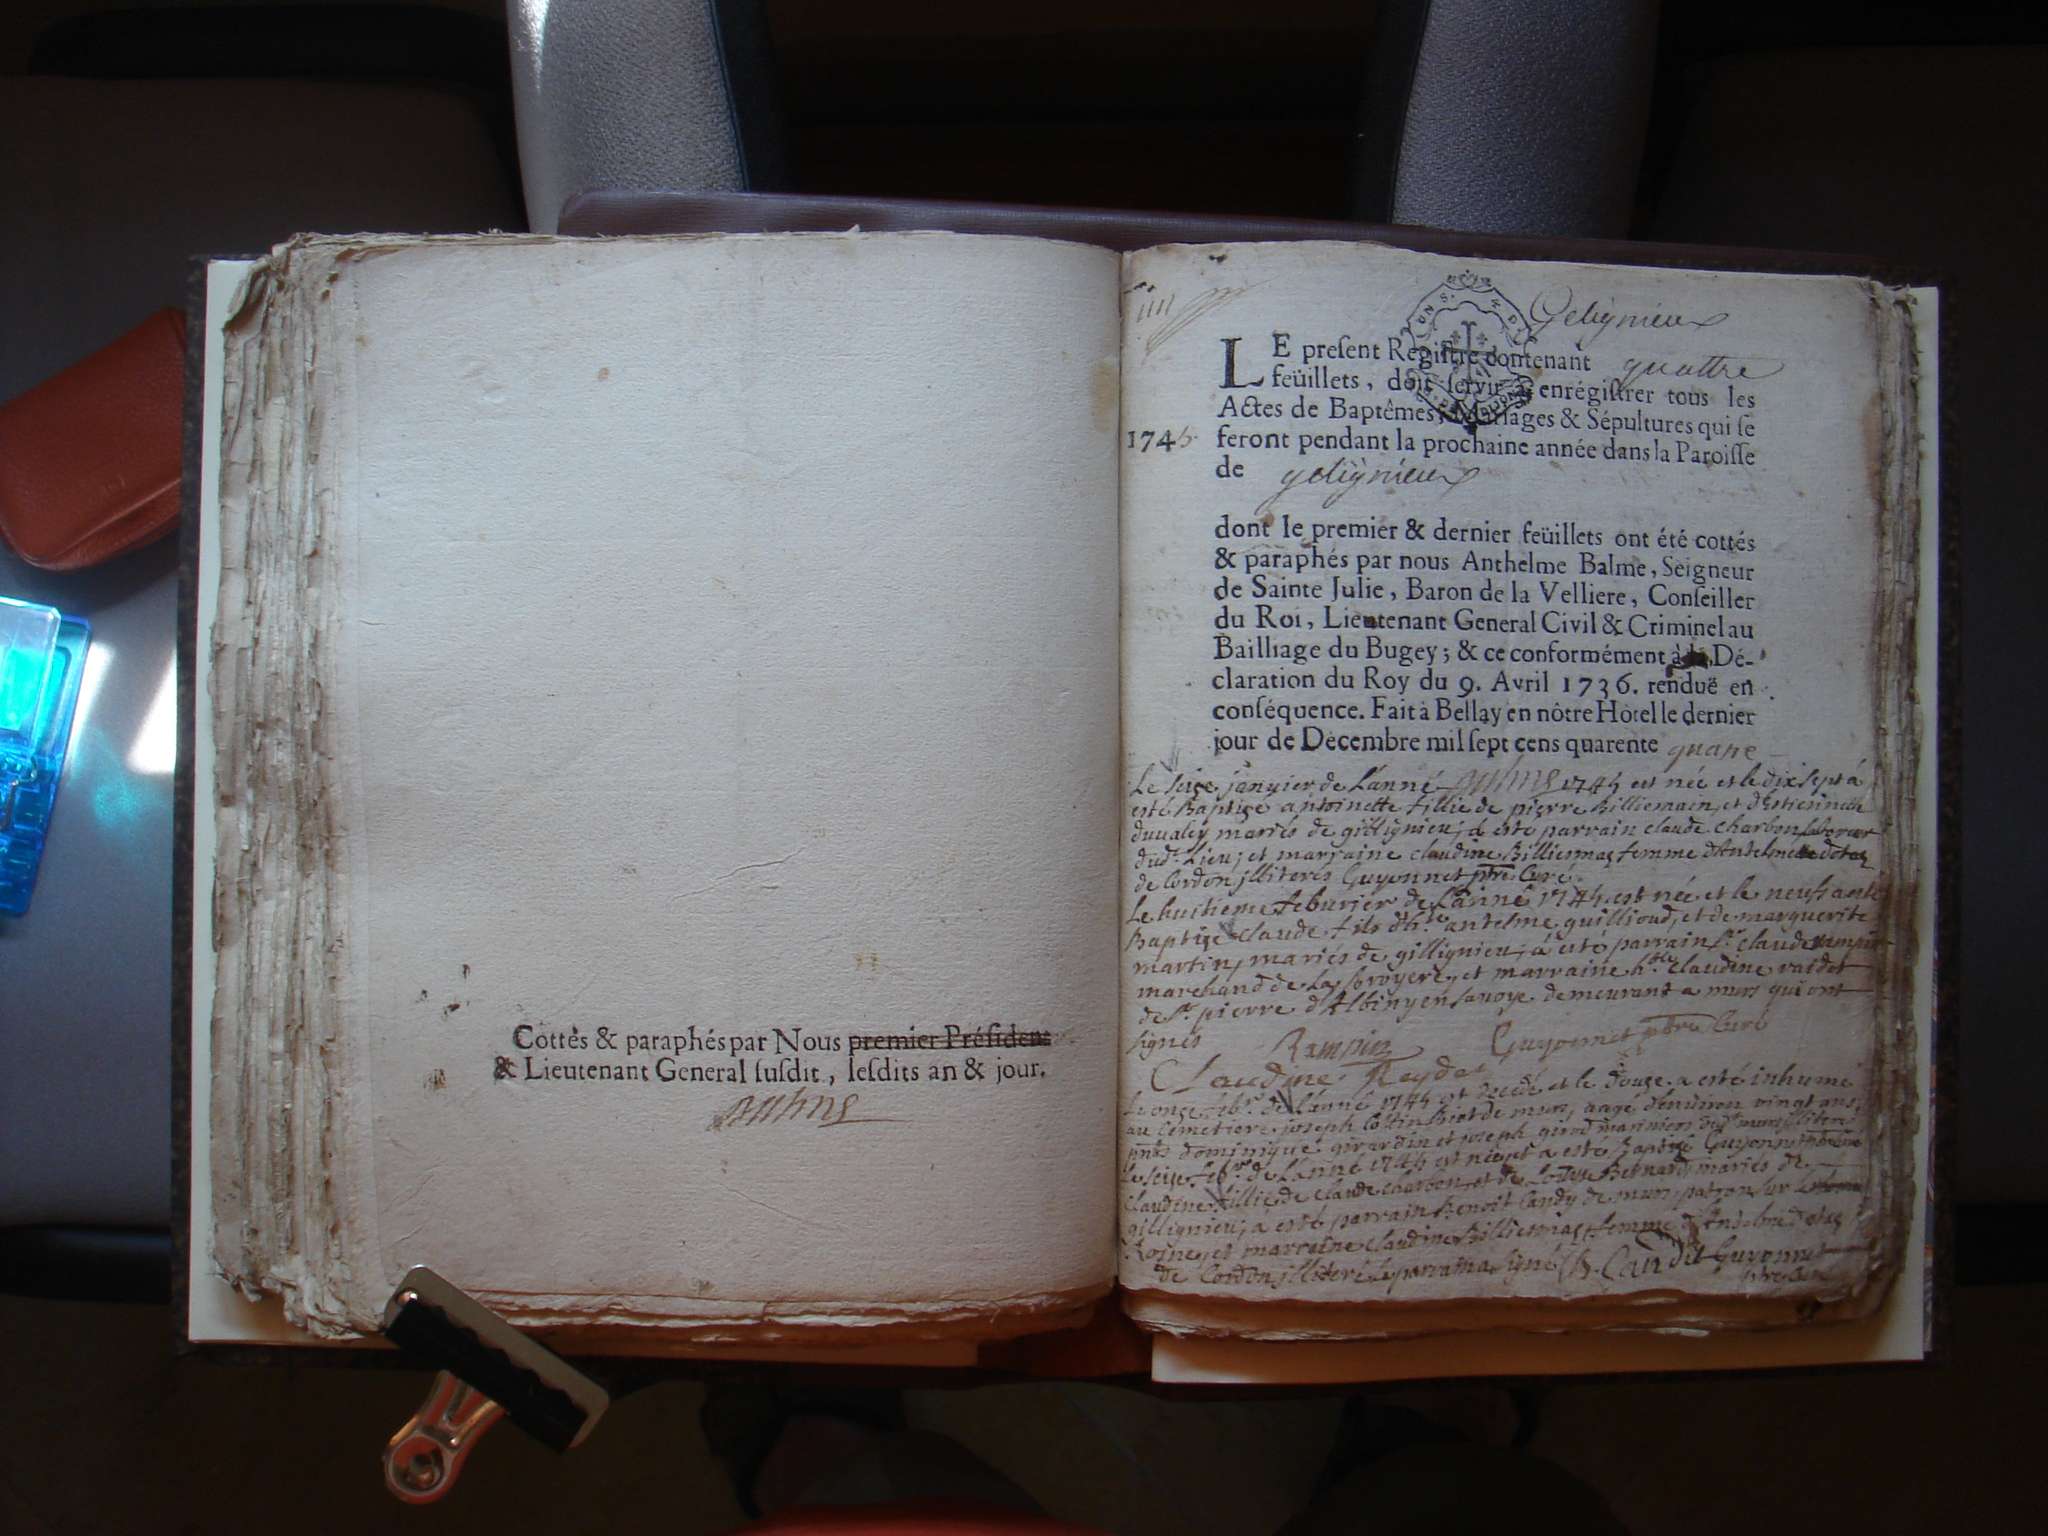 Cottés & paraphés par Nous premier Président
& Lieutenant General susdit, lesdits an & jour.
Gelignieux
LE present Registre contenant quattre
feüillets, doit servir à enrégistrer tous les
Actes de Baptêmes, Mariages & Sépultures qui se
1745 feront pendant la prochaine année dans la Paroisse
de gelignieux
dont le premier & dernier feüillets ont été cottés
& paraphés par nous Anthelme Balme, Seigneur
de Sainte Julie, Baron de la Velliere, Conseiller
du Roi, Lieutenant General Civil & Criminel au
Bailliage du Bugey; & ce conformément à la Dé-
claration du Roy du 9. Avril 1736. renduë en
conséquence. Fait à Bellay en nôtre Hôtel le dernier
jour de Decembre mil sept cens quarente
Le seize janvier de L'anné 1745 est née et le dix sept à
esté Baptize antoinette fillie de pierre Billiemain, et
mariés de gillignieu, à esté parrain claude charbon
dud. Lieu, et marraine claudine femme
de Cordon illiterés Guyonnet ptre Curé.
Le huitieme feburier de L'anné 1745 est née et le neuf
Baptize claude fils antelme guillioud, et de marguerite
martin, mariés de gillignieu, à esté parrain Sr. claude
marchand de La broyere, et marraine claudine
de St. pierre d'Albiny en savoye demeurant a murs qui ont
signés Rampin Guyonnet ptre Curé
Claudine Reydet
Le onze feb. de L'anné 1745 est decedé et le douze a esté inhumé
au Cemetiere joseph de murs, aagé d'environ vingt ans,
dominique girardin et joseph girod mariniers
Le seize feb. de L'anné 1745 est née et a esté Baptizé
Claudine fillie de claude charbon, et de Bernard mariés de
gillignieu, à esté parrain Benoit Candy de murs patron sur le
Rosne, et marraine claudine femme
de Cordon illiteré le parrain a signé B. Candit Guyonnet
ptre Curé